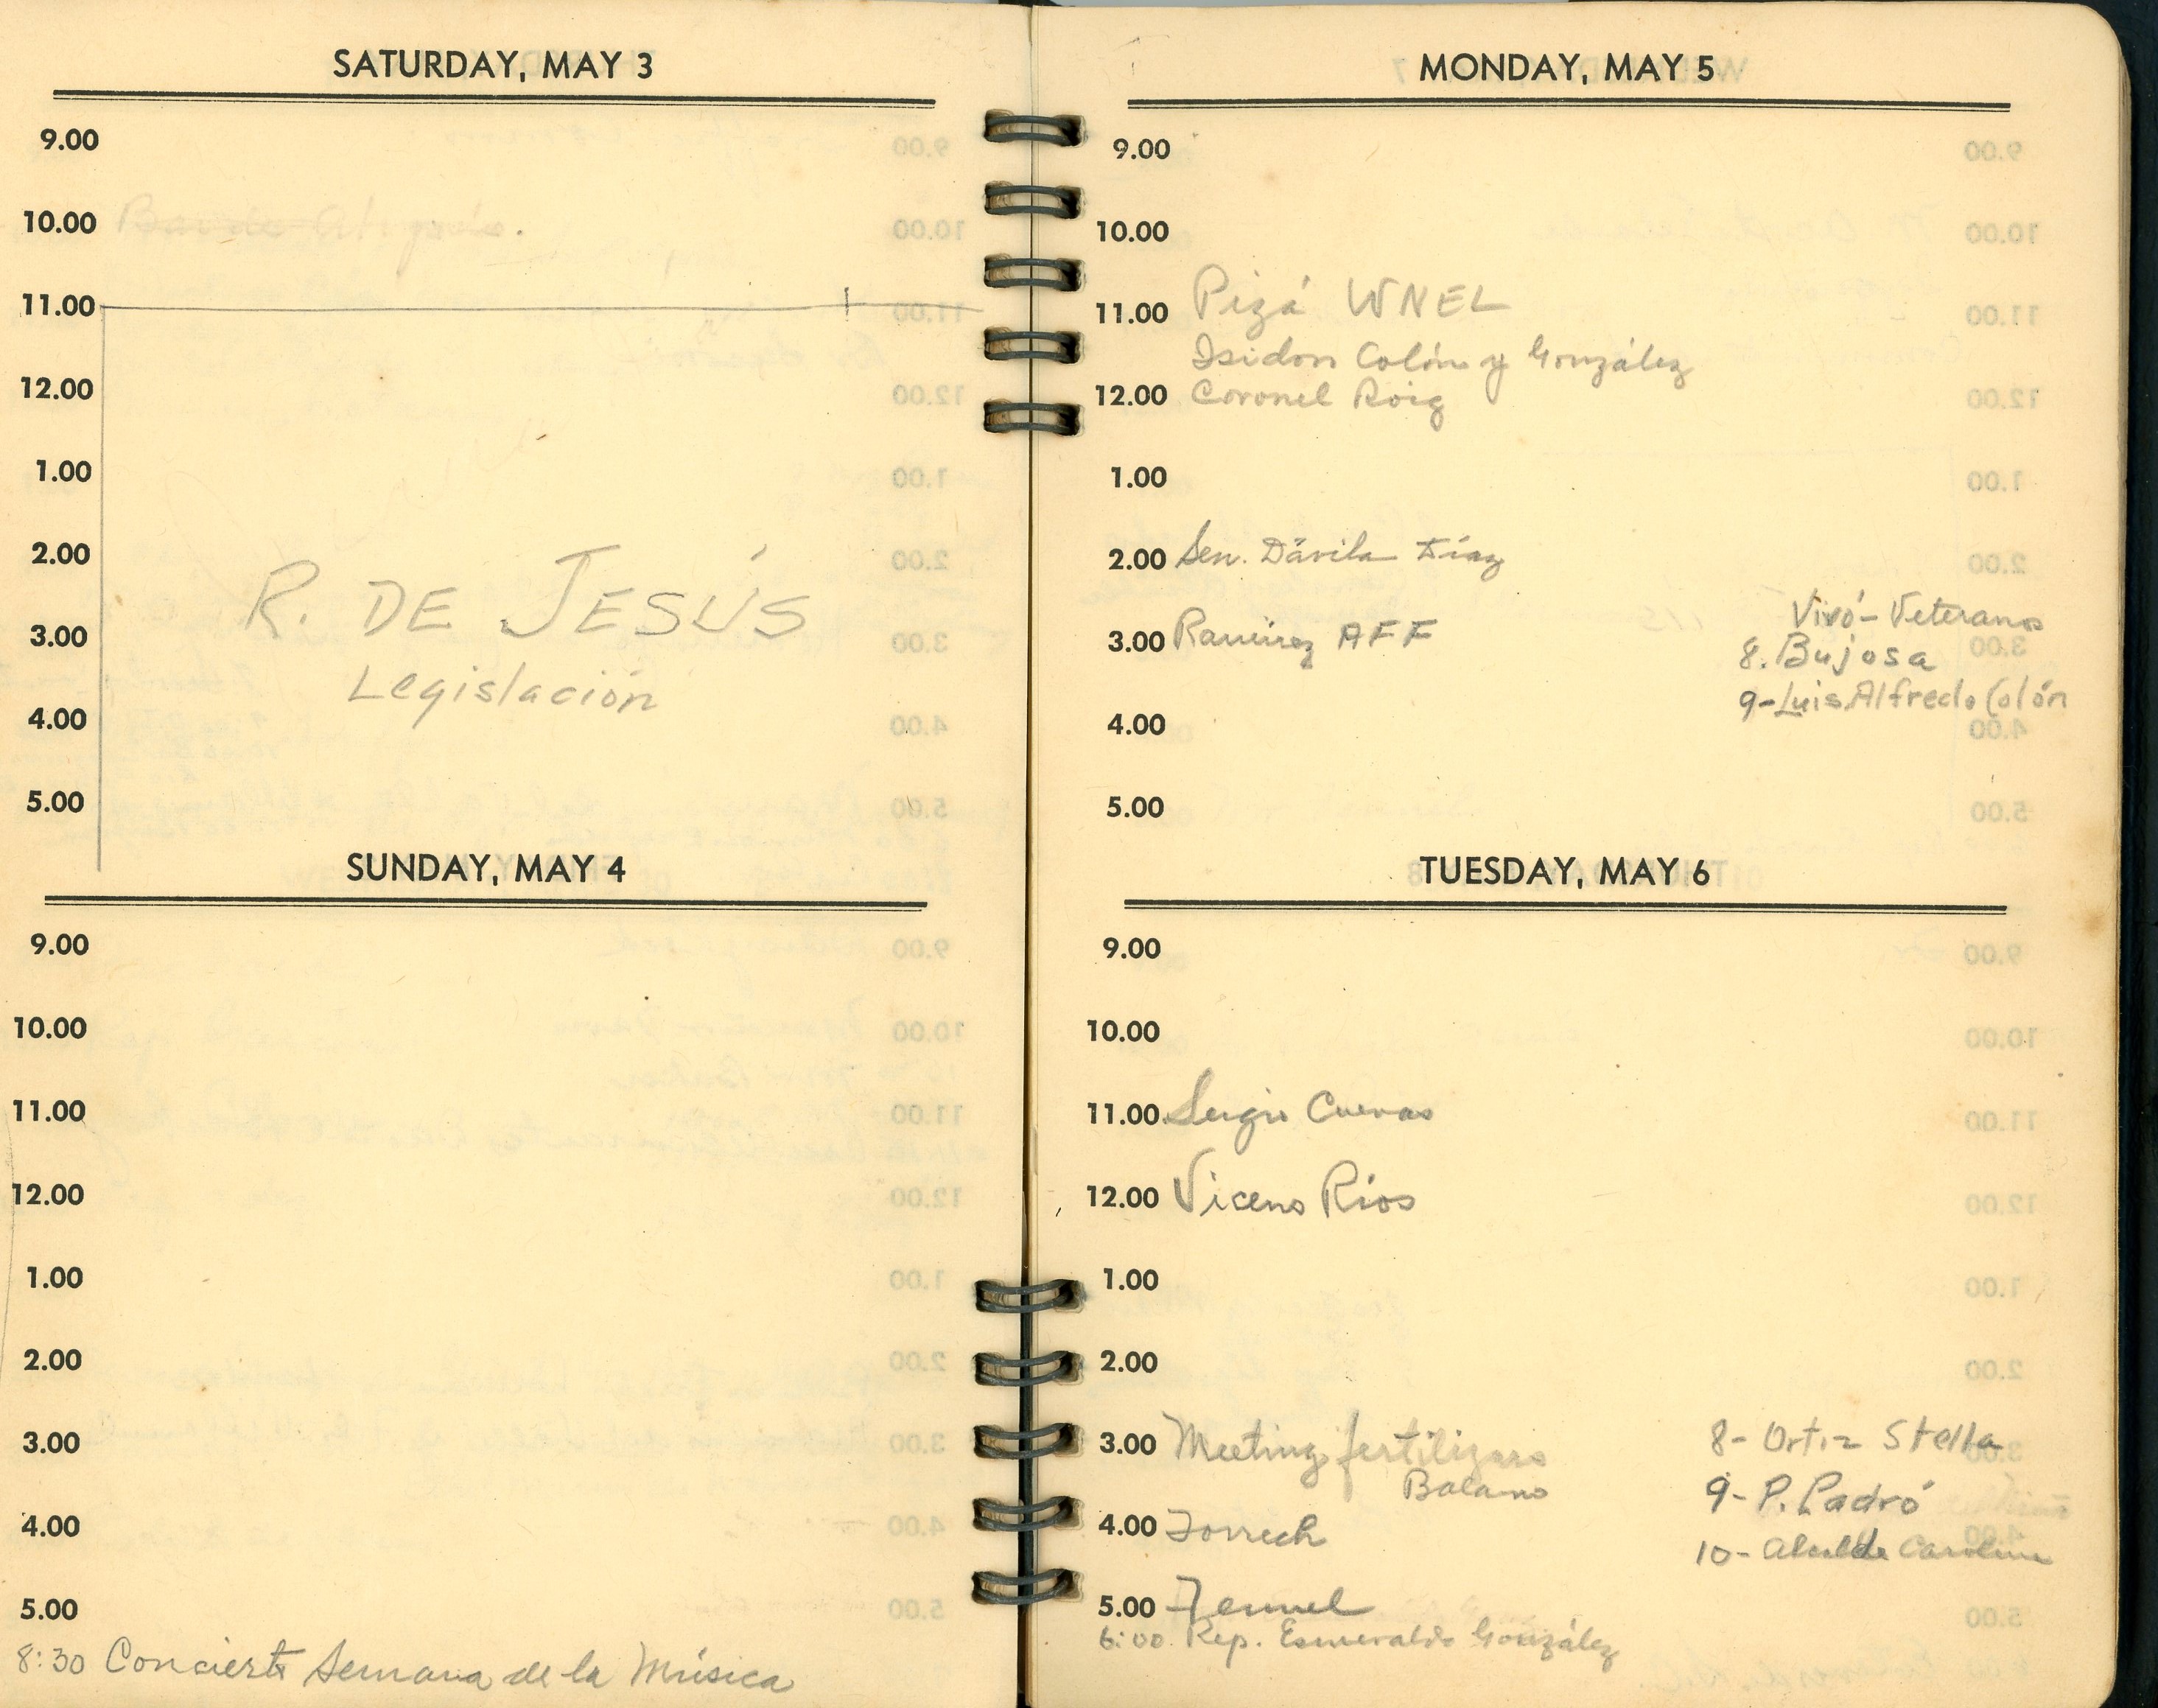 SATURDAY, MAY 3
9.00
10.00
11.00
12.00
1.00
2.00
R. DE JESÚS
3.00
Legislación
4.00
5.00
SUNDAY, MAY 4
9.00
10.00
11.00
12.00
1.00
2.00
3.00
4.00
5.00
8:30 Concierto Semana de la Música
MONDAY, MAY 5
9.00
10.00
11.00 Pizá WNEL
Isidoro Colón y González
12.00 Coronel Roig
1.00
2.00 Sen. Dávila Díaz
3.00 Ramírez AFF
Vivó - Veteranos
8. Bujosa
9 - Luis Alfredo Colón
4.00
5.00
TUESDAY, MAY 6
9.00
10.00
11.00 Sergio Cuevas
12.00 Vicens Ríos
1.00
2.00
3.00 Meeting fertilizers
Bolano
8 - Ortiz Stella
9 - P. Padró
10 - Alcalde Carolina
4.00 Torrech
5.00 Fennel
6:00 Rep. Esmeraldo González